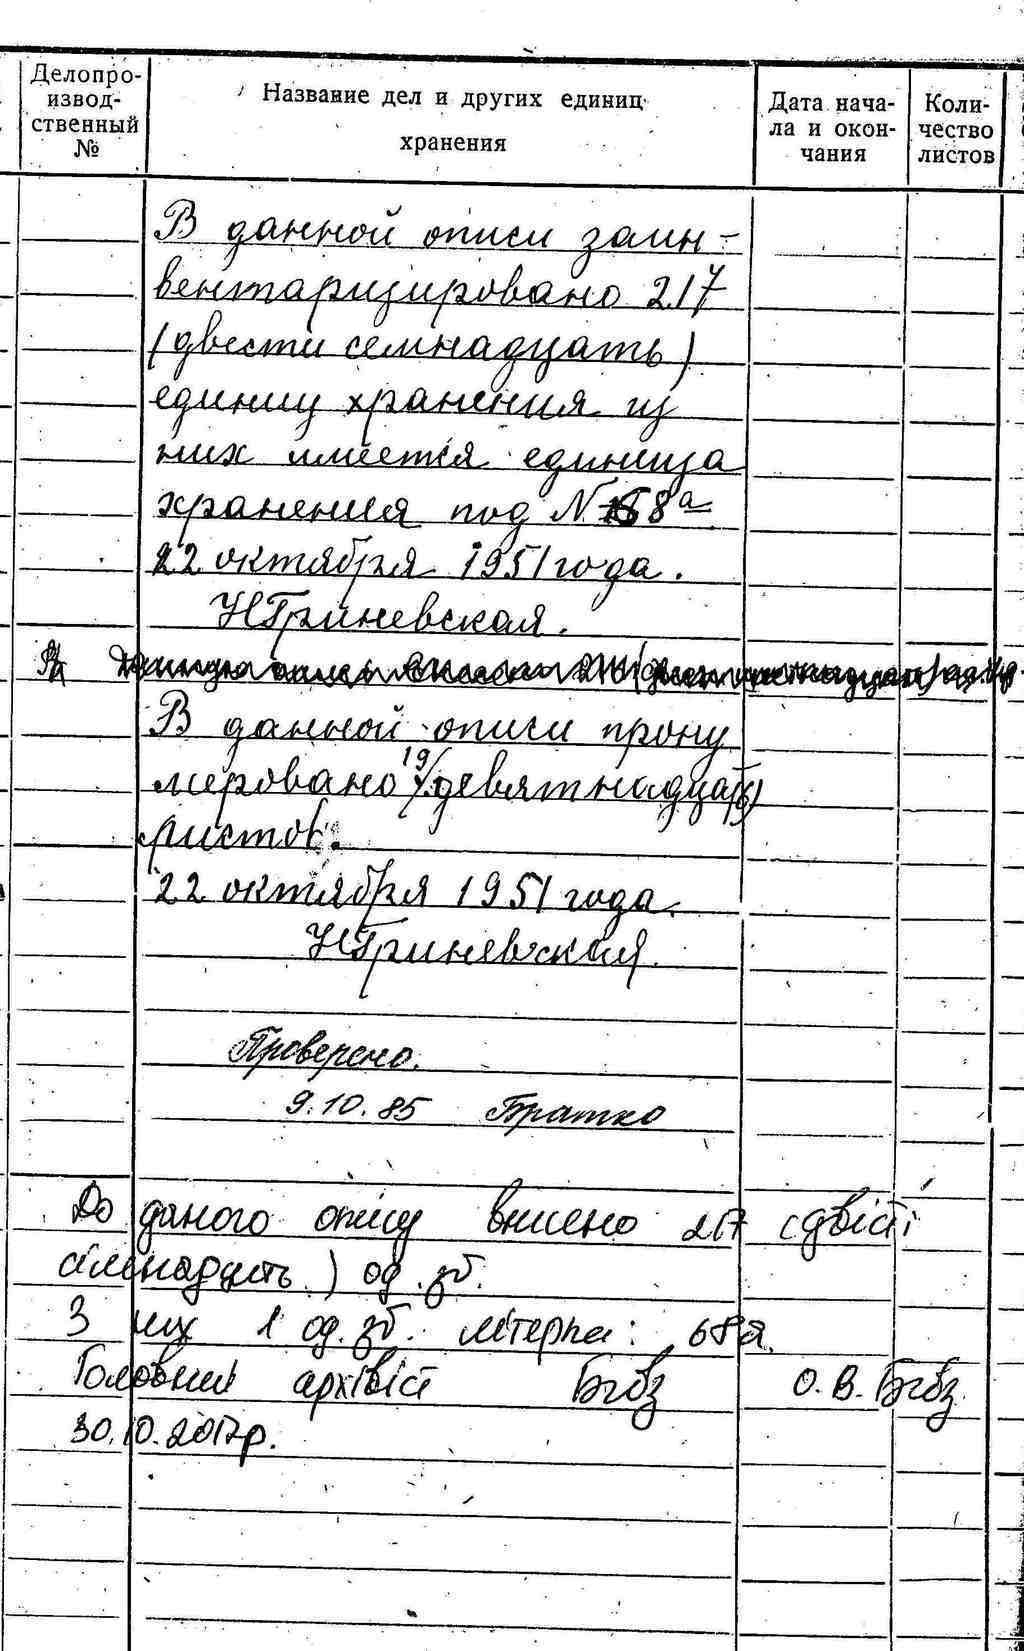 Делопро-
извод-
ственный
№
Название дел и других единиц
хранения
Дата нача-
ла и окон-
чания
Коли-
чество
листов
В данной описи заин-
вентаризировано 217
(двести семнадцать)
единиц хранения из
них имеется единица
хранения под N 68а
22 октября 1951 года.
НГриневская.
В данной описи прону
меровано 19 (девятнадцать)
листов.
22 октября 1951 года.
НГриневская.
Проверено.
9.10.85 Братко
До даного опису внесено 217 (двісті
сімнадцять) од. зб.
З них 1 од. зб. літерна: 68а.
Головний архівіст О.В.
30.10.2017р.